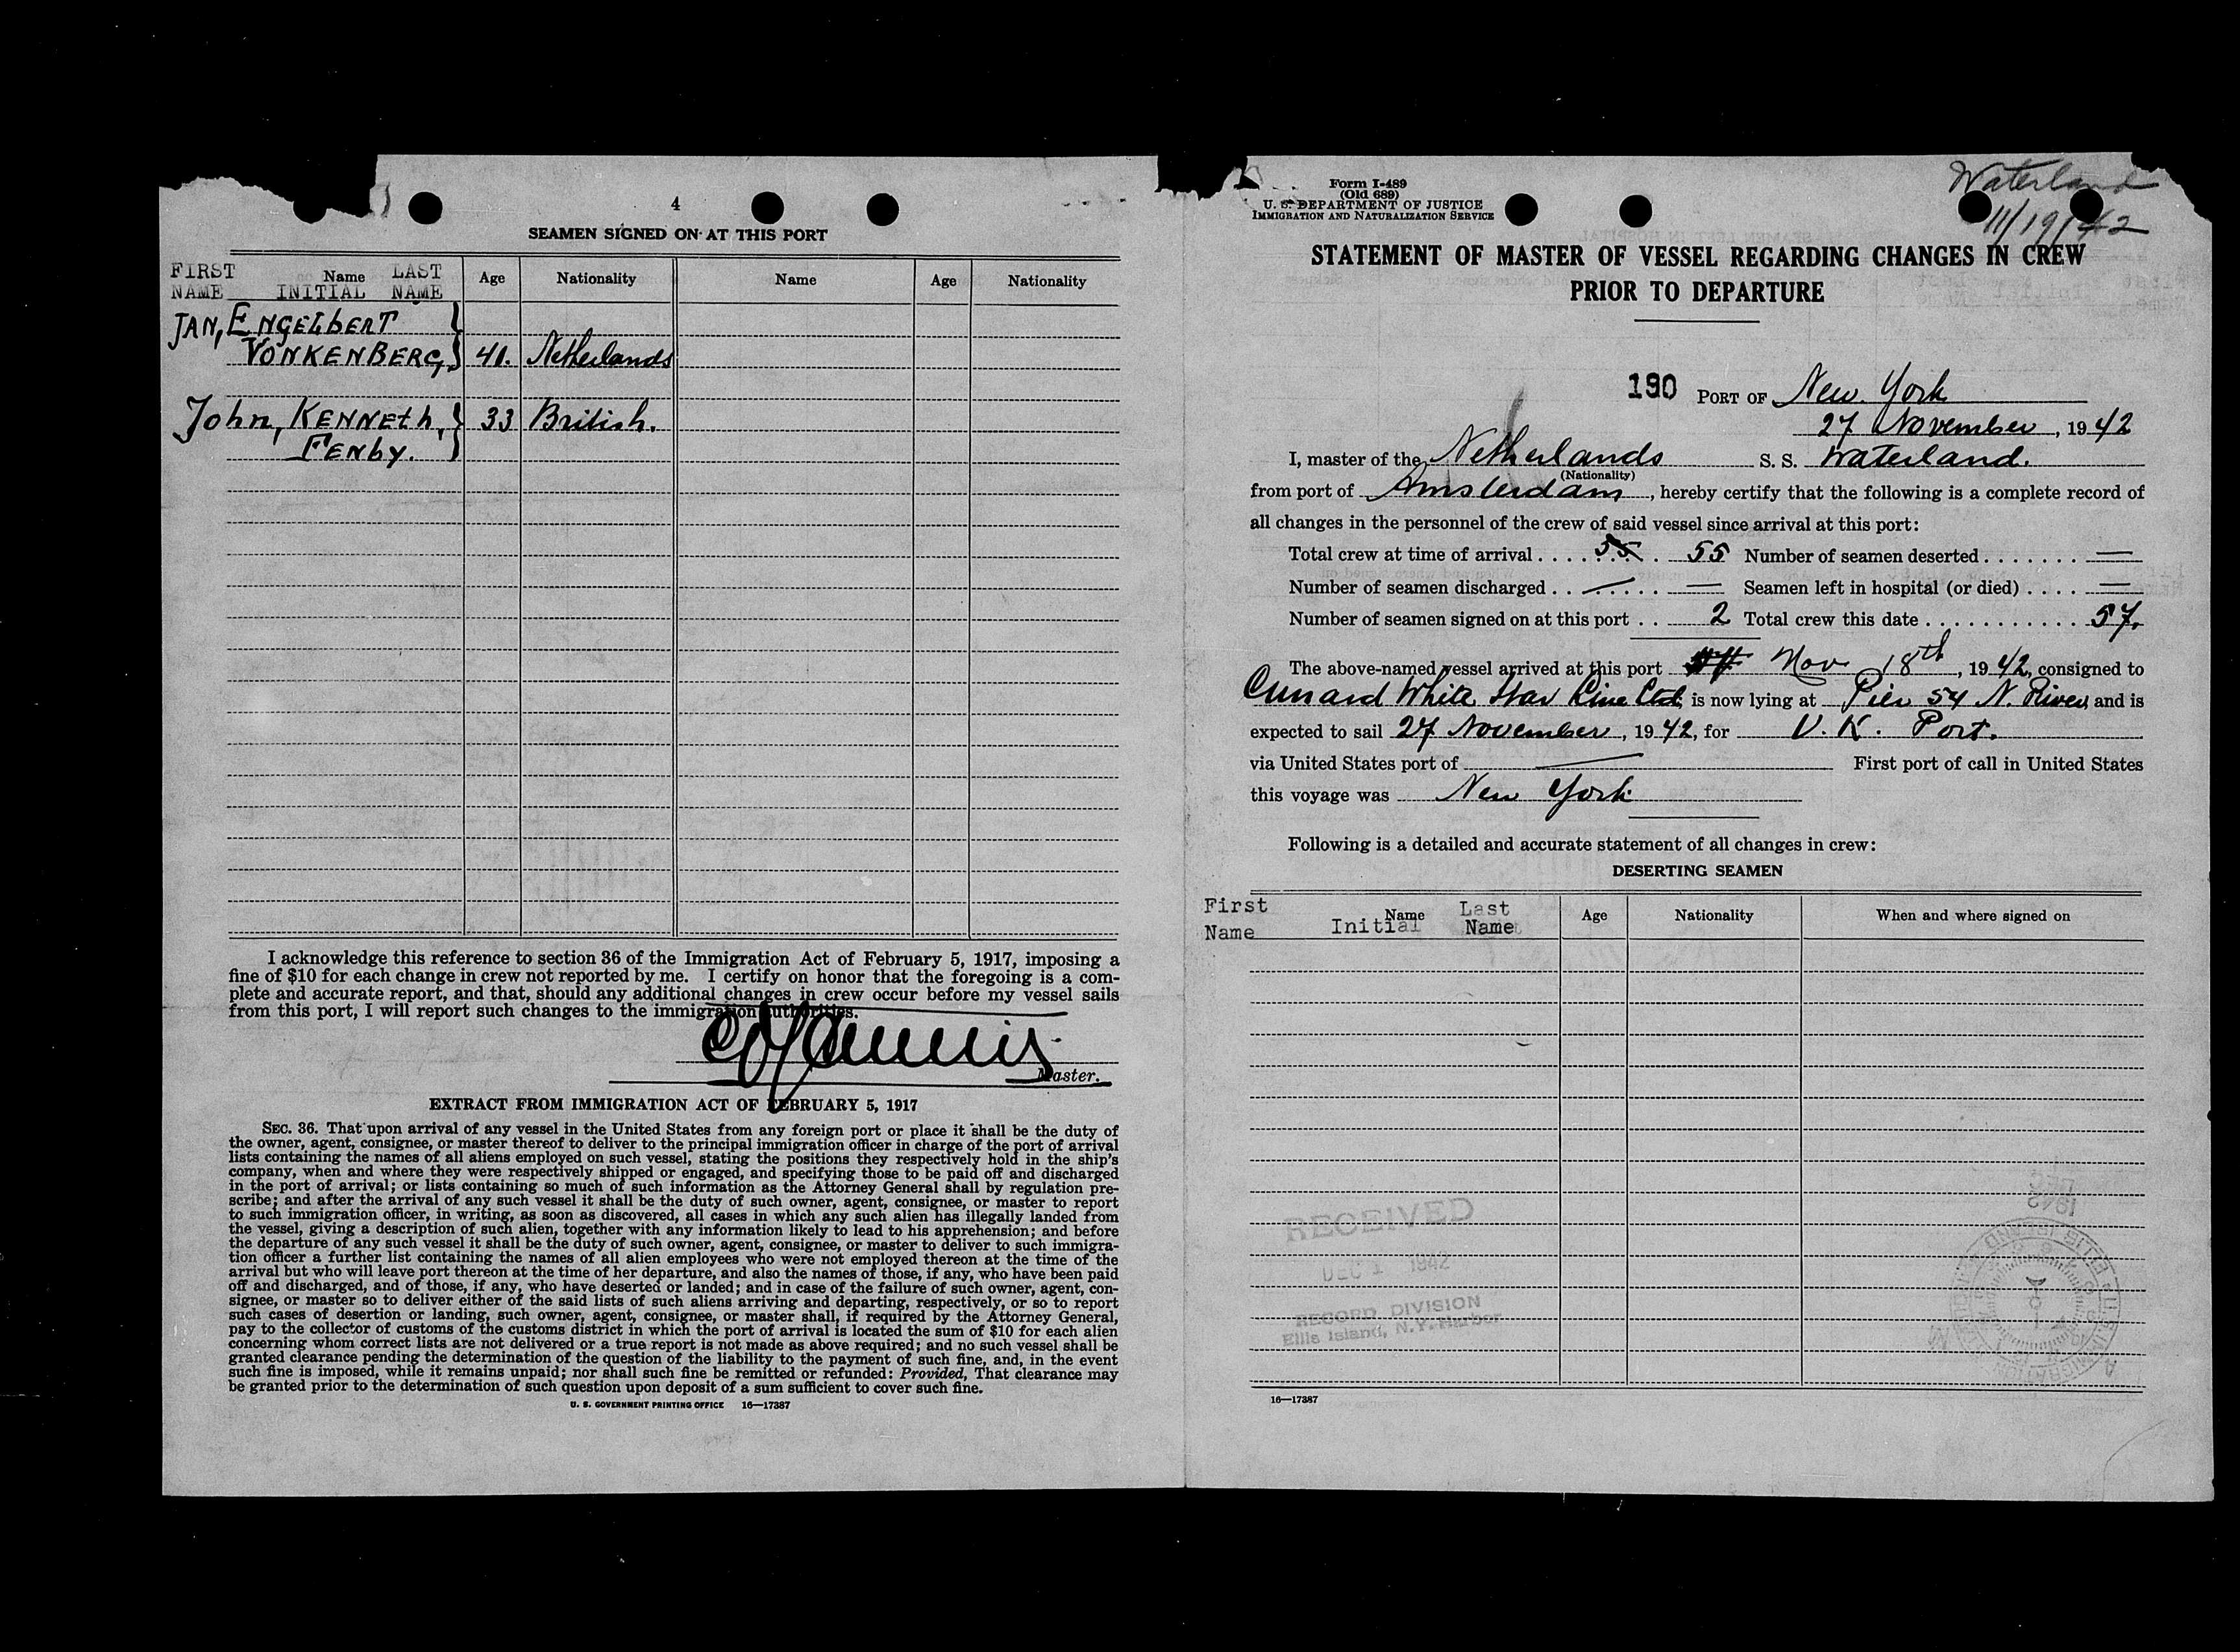 4
SEAMEN SIGNED ON AT THIS PORT
FIRST NAME Name INITIAL LAST NAME Age Nationality Name Age Nationality
JAN, ENGELbERT
VONKENBERG, 41. Netherlands
John, KENNETh, 33 British.
FENby.
I acknowledge this reference to section 36 of the Immigration Act of February 5, 1917, imposing a
fine of $10 for each change in crew not reported by me. I certify on honor that the foregoing is a com-
plete and accurate report, and that, should any additional changes in crew occur before my vessel sails
from this port, I will report such changes to the immigration authorities.
Master.
EXTRACT FROM IMMIGRATION ACT OF FEBRUARY 5, 1917
SEC. 36. That upon arrival of any vessel in the United States from any foreign port or place it shall be the duty of
the owner, agent, consignee, or master thereof to deliver to the principal immigration officer in charge of the port of arrival
lists containing the names of all aliens employed on such vessel, stating the positions they respectively hold in the ship's
company, when and where they were respectively shipped or engaged, and specifying those to be paid off and discharged
in the port of arrival; or lists containing so much of such information as the Attorney General shall by regulation pre-
scribe; and after the arrival of any such vessel it shall be the duty of such owner, agent, consignee, or master to report
to such immigration officer, in writing, as soon as discovered, all cases in which any such alien has illegally landed from
the vessel, giving a description of such alien, together with any information likely to lead to his apprehension; and before
the departure of any such vessel it shall be the duty of such owner, agent, consignee, or master to deliver to such immigra-
tion officer a further list containing the names of all alien employees who were not employed thereon at the time of the
arrival but who will leave port thereon at the time of her departure, and also the names of those, if any, who have been paid
off and discharged, and of those, if any, who have deserted or landed; and in case of the failure of such owner, agent, con-
signee, or master so to deliver either of the said lists of such aliens arriving and departing, respectively, or so to report
such cases of desertion or landing, such owner, agent, consignee, or master shall, if required by the Attorney General,
pay to the collector of customs of the customs district in which the port of arrival is located the sum of $10 for each alien
concerning whom correct lists are not delivered or a true report is not made as above required; and no such vessel shall be
granted clearance pending the determination of the question of the liability to the payment of such fine, and, in the event
such fine is imposed, while it remains unpaid; nor shall such fine be remitted or refunded: Provided, That clearance may
be granted prior to the determination of such question upon deposit of a sum sufficient to cover such fine.
U. S. GOVERNMENT PRINTING OFFICE 16—17387
Form I-489
(Old 689)
U. S. DEPARTMENT OF JUSTICE
IMMIGRATION AND NATURALIZATION SERVICE
Waterland
11/19/42
STATEMENT OF MASTER OF VESSEL REGARDING CHANGES IN CREW
PRIOR TO DEPARTURE
190 PORT OF New York
27 November, 1942
I, master of the Netherlands S. S. Waterland.
(Nationality)
from port of Amsterdam, hereby certify that the following is a complete record of
all changes in the personnel of the crew of said vessel since arrival at this port:
Total crew at time of arrival .... 55 . 55 Number of seamen deserted ....... —
Number of seamen discharged .. — Seamen left in hospital (or died) .... —
Number of seamen signed on at this port .. 2 Total crew this date ............ 57.
The above-named vessel arrived at this port Nov 18th, 1942, consigned to
Cunard White Star Line Ltd, is now lying at Pier 54 N. River, and is
expected to sail 27 November, 1942, for U. K. Port.
via United States port of — First port of call in United States
this voyage was New York
Following is a detailed and accurate statement of all changes in crew:
DESERTING SEAMEN
First Name Name Initial Last Name Age Nationality When and where signed on
RECEIVED
DEC 1 1942
RECORD DIVISION
Ellis Island, N.Y. Harbor
16—17387